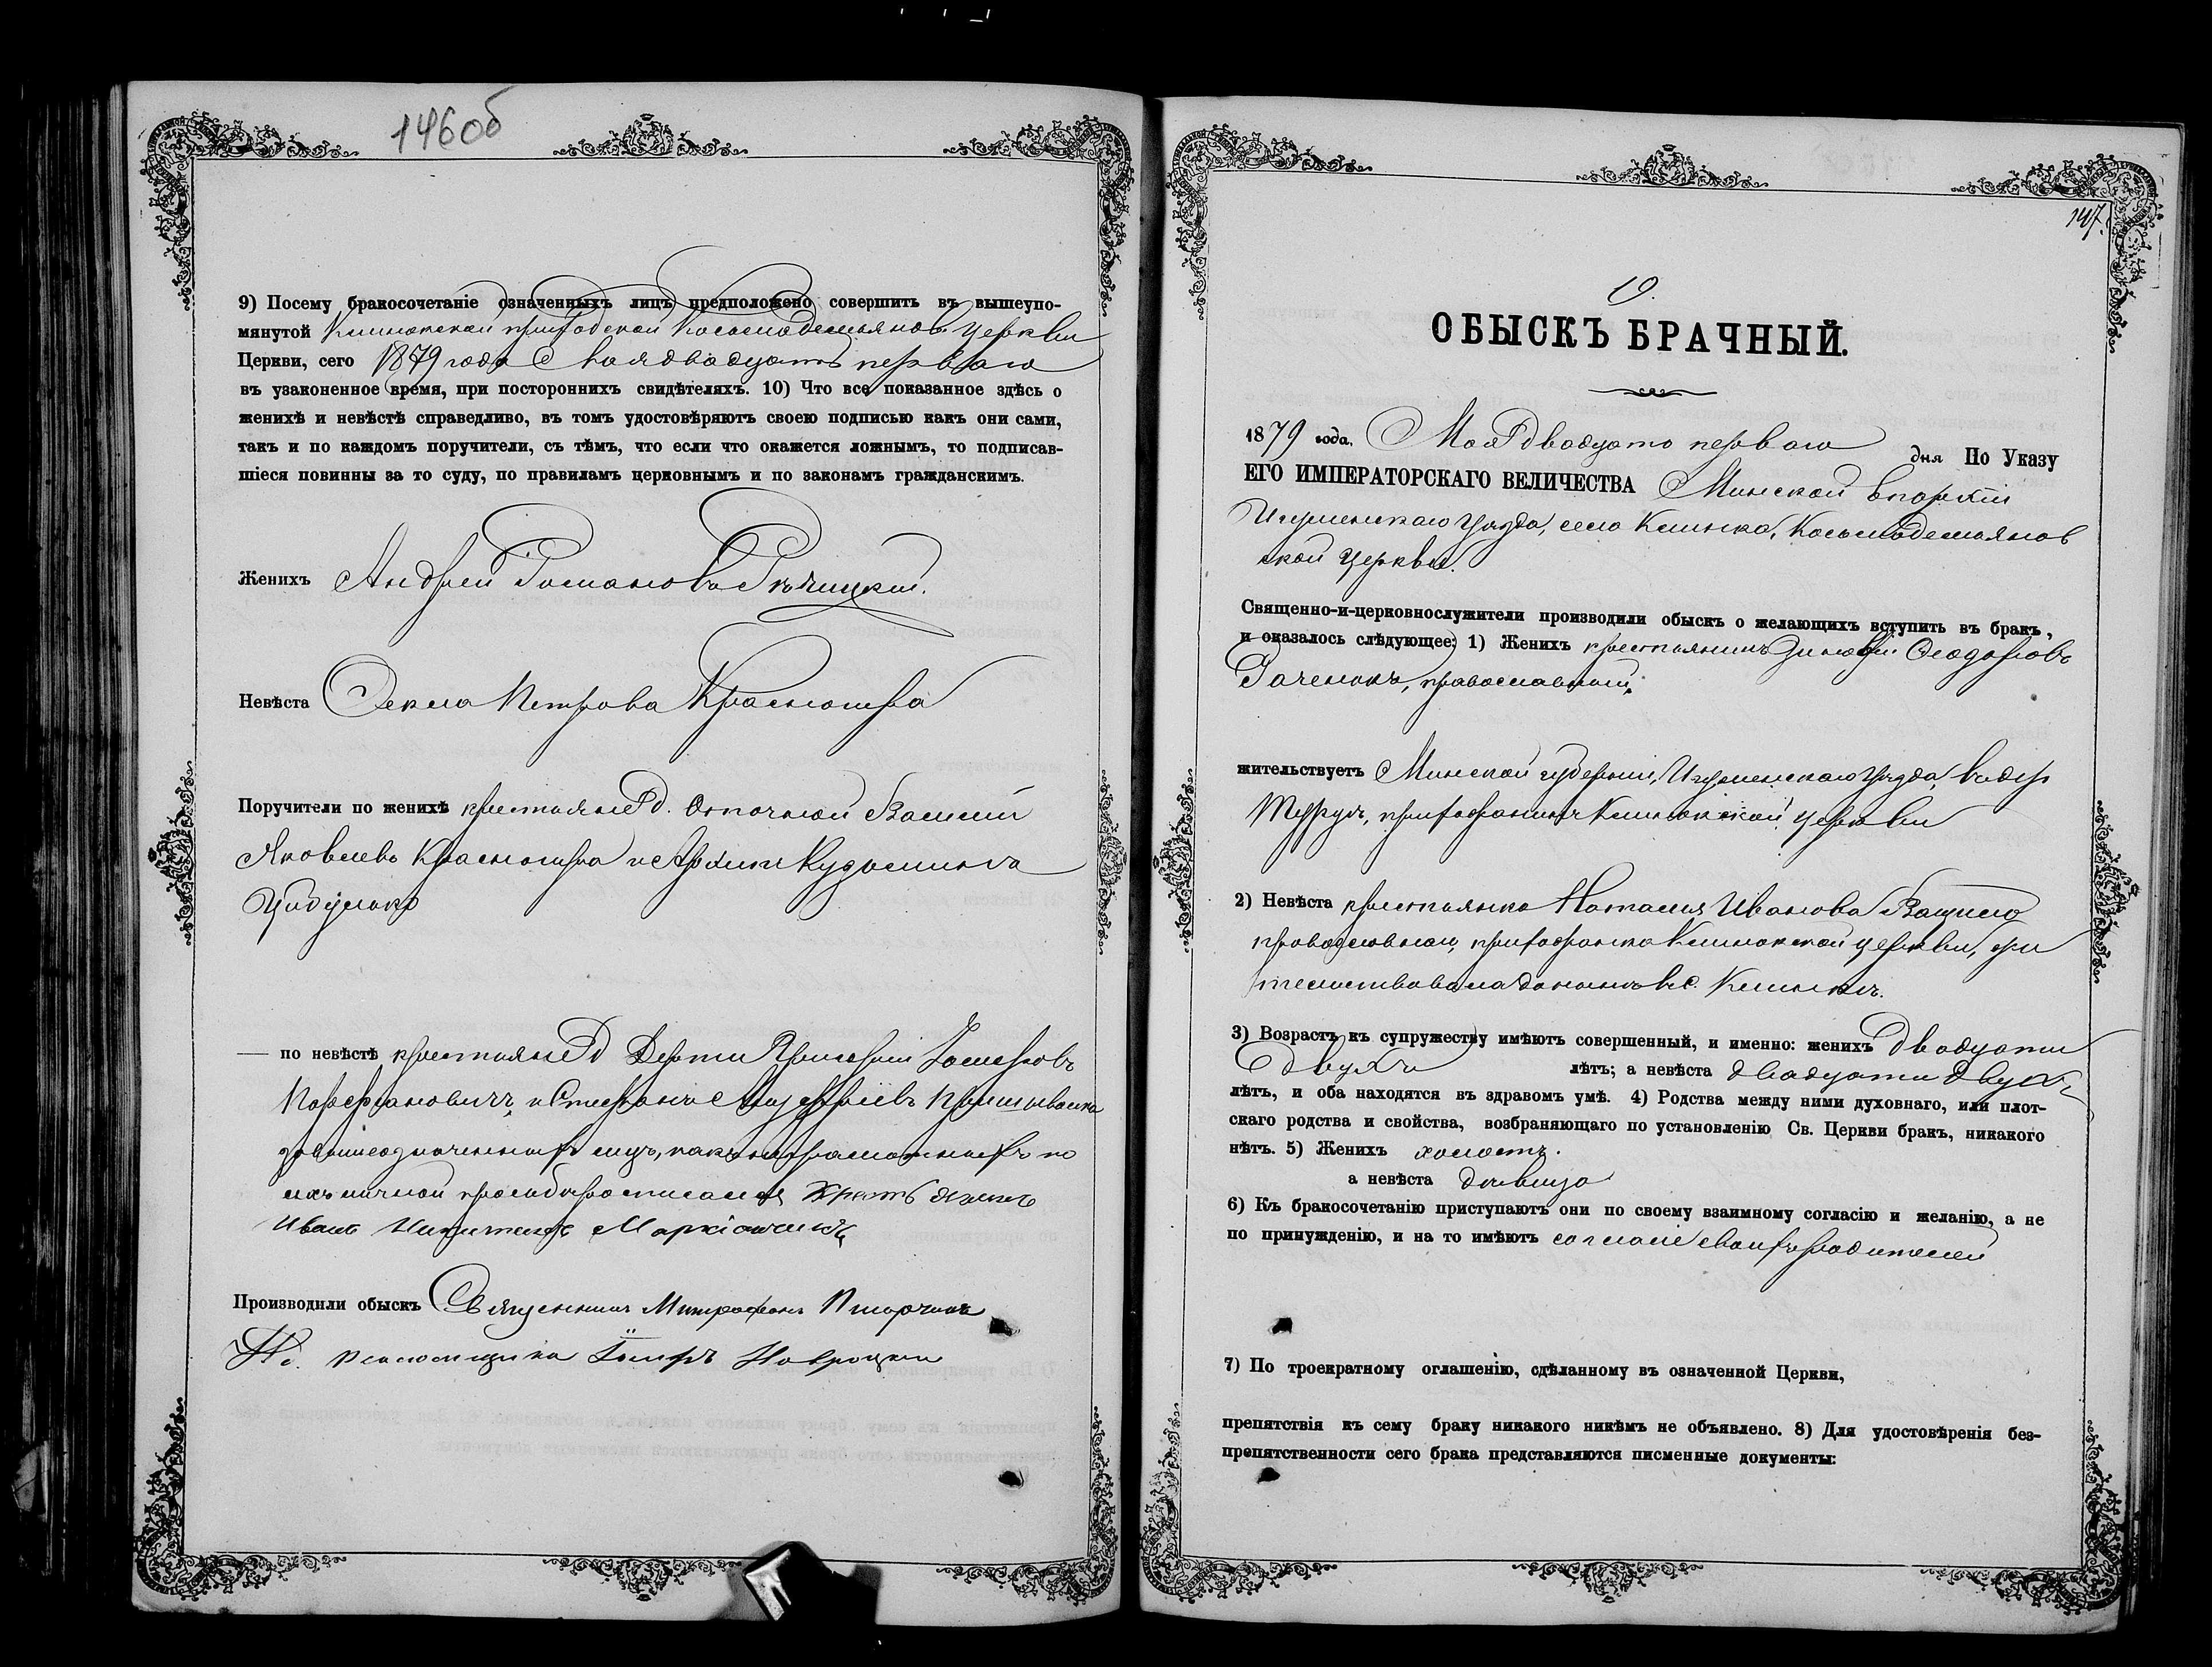 146об
9) Посему бракосочетаніе означенныхъ лицъ предположено совершить въ вышеупо-
мянутой Клинокской приходской Косьмодемьянов. церкви
Церкви, сего 1879 года Мая двадцать перваго
въ узаконенное время, при постороннихъ свидѣтеляхъ. 10) Что все показанное здѣсь о
женихѣ и невѣстѣ справедливо, въ томъ удостовѣряютъ своею подписью какъ они сами,
такъ и по каждомъ поручители, съ тѣмъ, что если что окажется ложнымъ, то подписав-
шіеся повинны за то суду, по правиламъ церковнымъ и по законамъ гражданскимъ.
Женихъ Андрей Романовъ Рѣчицкій.
Невѣста Ѳекла Петрова
Поручители по женихѣ крестьяне д. Василій
Яковлевъ и
по невѣстѣ крестьяне д Григорій
и Стефанъ
лицъ, какъ неграмотныхъ по
ихъ личной просьбѣ росписался
Иванъ
Производили обыскъ Священникъ Митрофанъ
И. д. псаломщика Навроцкій
147.
19.
ОБЫСКЪ БРАЧНЫЙ.
1879 года, Мая двадцать перваго дня По Указу
ЕГО ИМПЕРАТОРСКАГО ВЕЛИЧЕСТВА Минской епархіи
Игуменскаго уѣзда, села Клинка, Косьмодемьянов
ской церкви.
Священно-и-церковнослужители производили обыскъ о желающихъ вступить въ бракъ,
и оказалось слѣдующее: 1) Женихъ крестьянинъ Зиновій Ѳеодоровъ
православный,
жительствуетъ Минской губерніи, Игуменскаго уѣзда, въ дер
прихожанинъ Клинокской церкви
2) Невѣста крестьянка Наталія Иванова
православная, прихожанка Клинокской церкви, жи
тельствовала донынѣ въ с. Клинкѣ.
3) Возрастъ къ супружеству имѣютъ совершенный, и именно: женихъ двадцати
двухъ лѣтъ; а невѣста двадцати двухъ
лѣтъ, и оба находятся въ здравомъ умѣ. 4) Родства между ними духовнаго, или плот-
скаго родства и свойства, возбраняющаго по установленію Св. Церкви бракъ, никакого
нѣтъ. 5) Женихъ холостъ.
а невѣста дѣвица
6) Къ бракосочетанію приступаютъ они по своему взаимному согласію и желанію, а не
по принужденію, и на то имѣютъ согласіе своихъ родителей
7) По троекратному оглашенію, сдѣланному въ означенной Церкви,
препятствія къ сему браку никакого никѣмъ не объявлено. 8) Для удостовѣренія без-
препятственности сего брака представляются писменные документы: